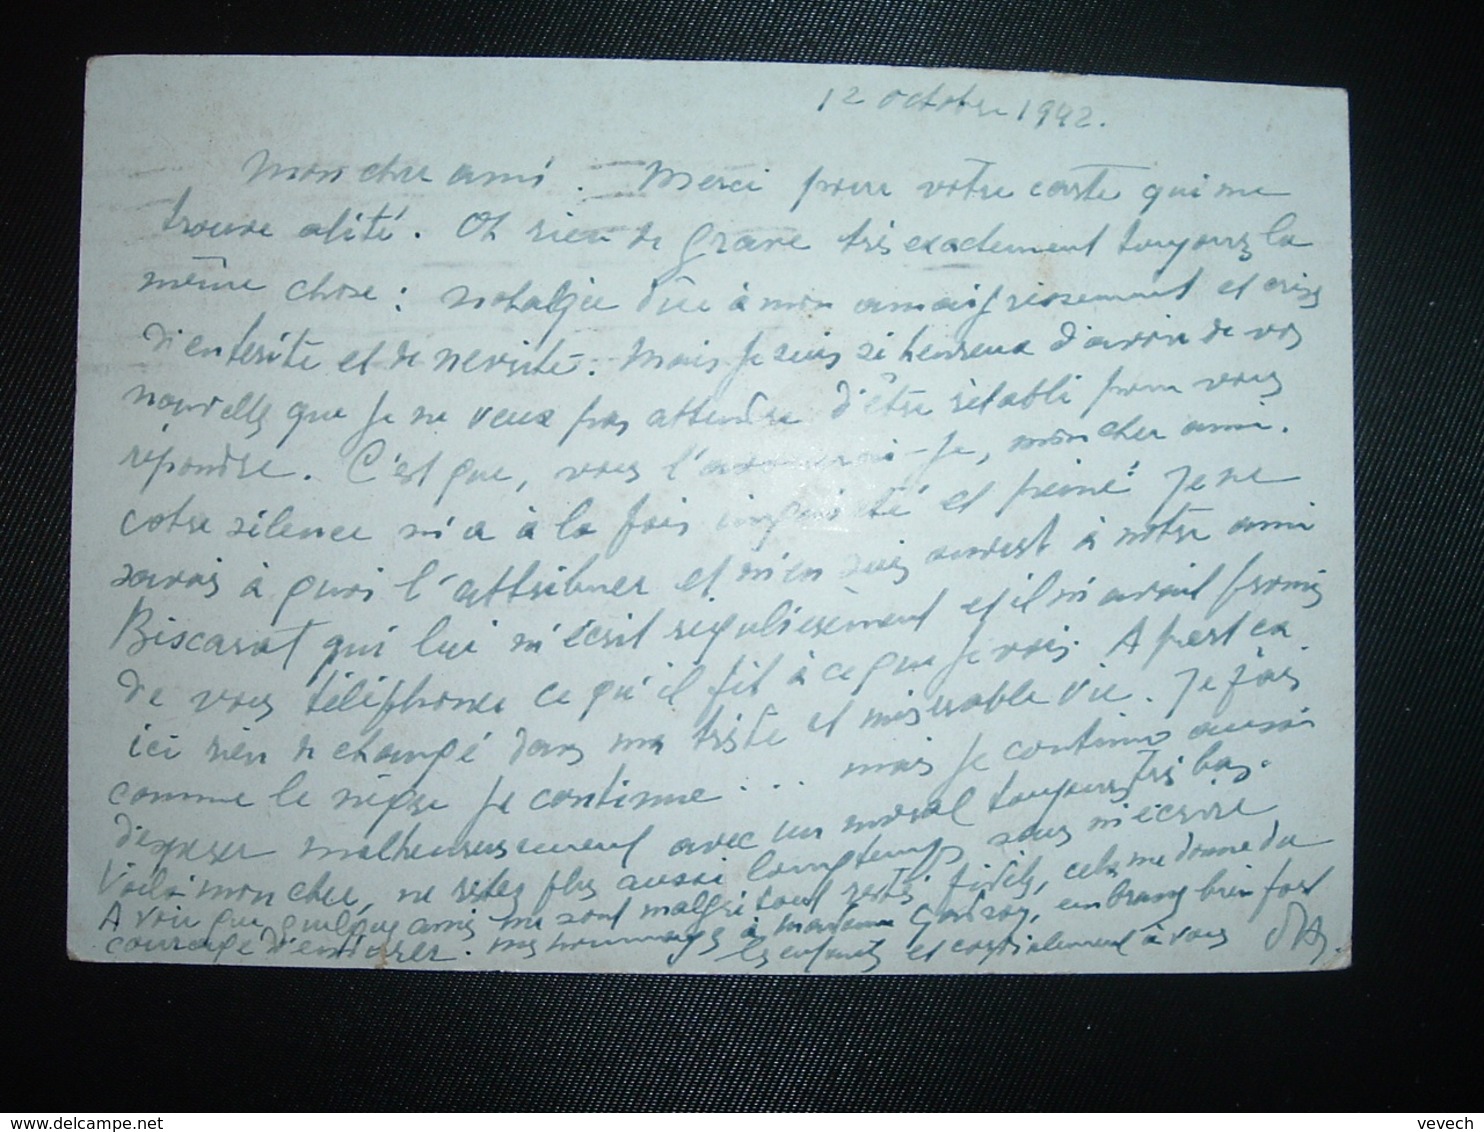 12 octobre 1942.
Mon cher ami. Merci pour votre carte qui me
trouve alité. Oh rien de grave très exactement toujours la
même chose : due à mon amaigrissement et crise
d'entérite et de nevrite. Mais je suis si heureux d'avoir de vos
nouvelles que je ne veux pas attendre d'être rétabli pour vous
répondre. C'est que, vous l'avouerai-je, mon cher ami.
votre silence m'a à la fois inquiété et peiné. Je ne
savais à quoi l'attribuer et m'en suis ouvert à notre ami
Biscarat qui lui m'écrit régulièrement et il m'avait promis
de vous téléphoner ce qu'il fit à ce que je vois. A part ca
ici rien de changé dans ma triste et misérable vie. Je fais
comme le nègre je continue... mais je continue aussi
malheureusement avec un moral toujours très bas.
Voilà mon cher, ne restez plus aussi longtemps sans m'écrire
A voir que quelques amis me sont malgré tout restés fidèles, cela me donne du
courage d'envoyer. mes hommages à Madame embrassez bien fort
les enfants et cordialement à vous
vevech